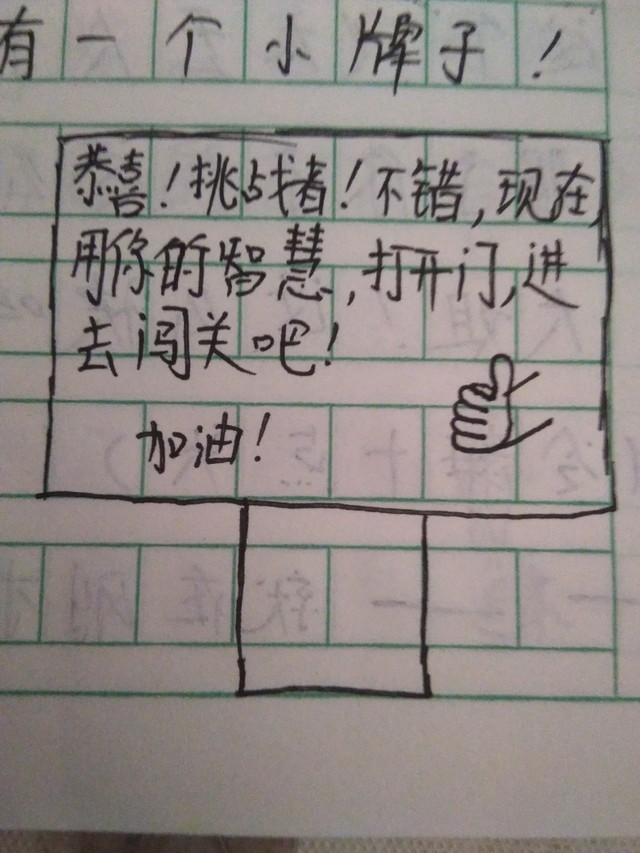 有一个小牌子！
恭喜！挑战者！不错，现在，
用你的智慧，打开门，进
去闯关吧！
加油！